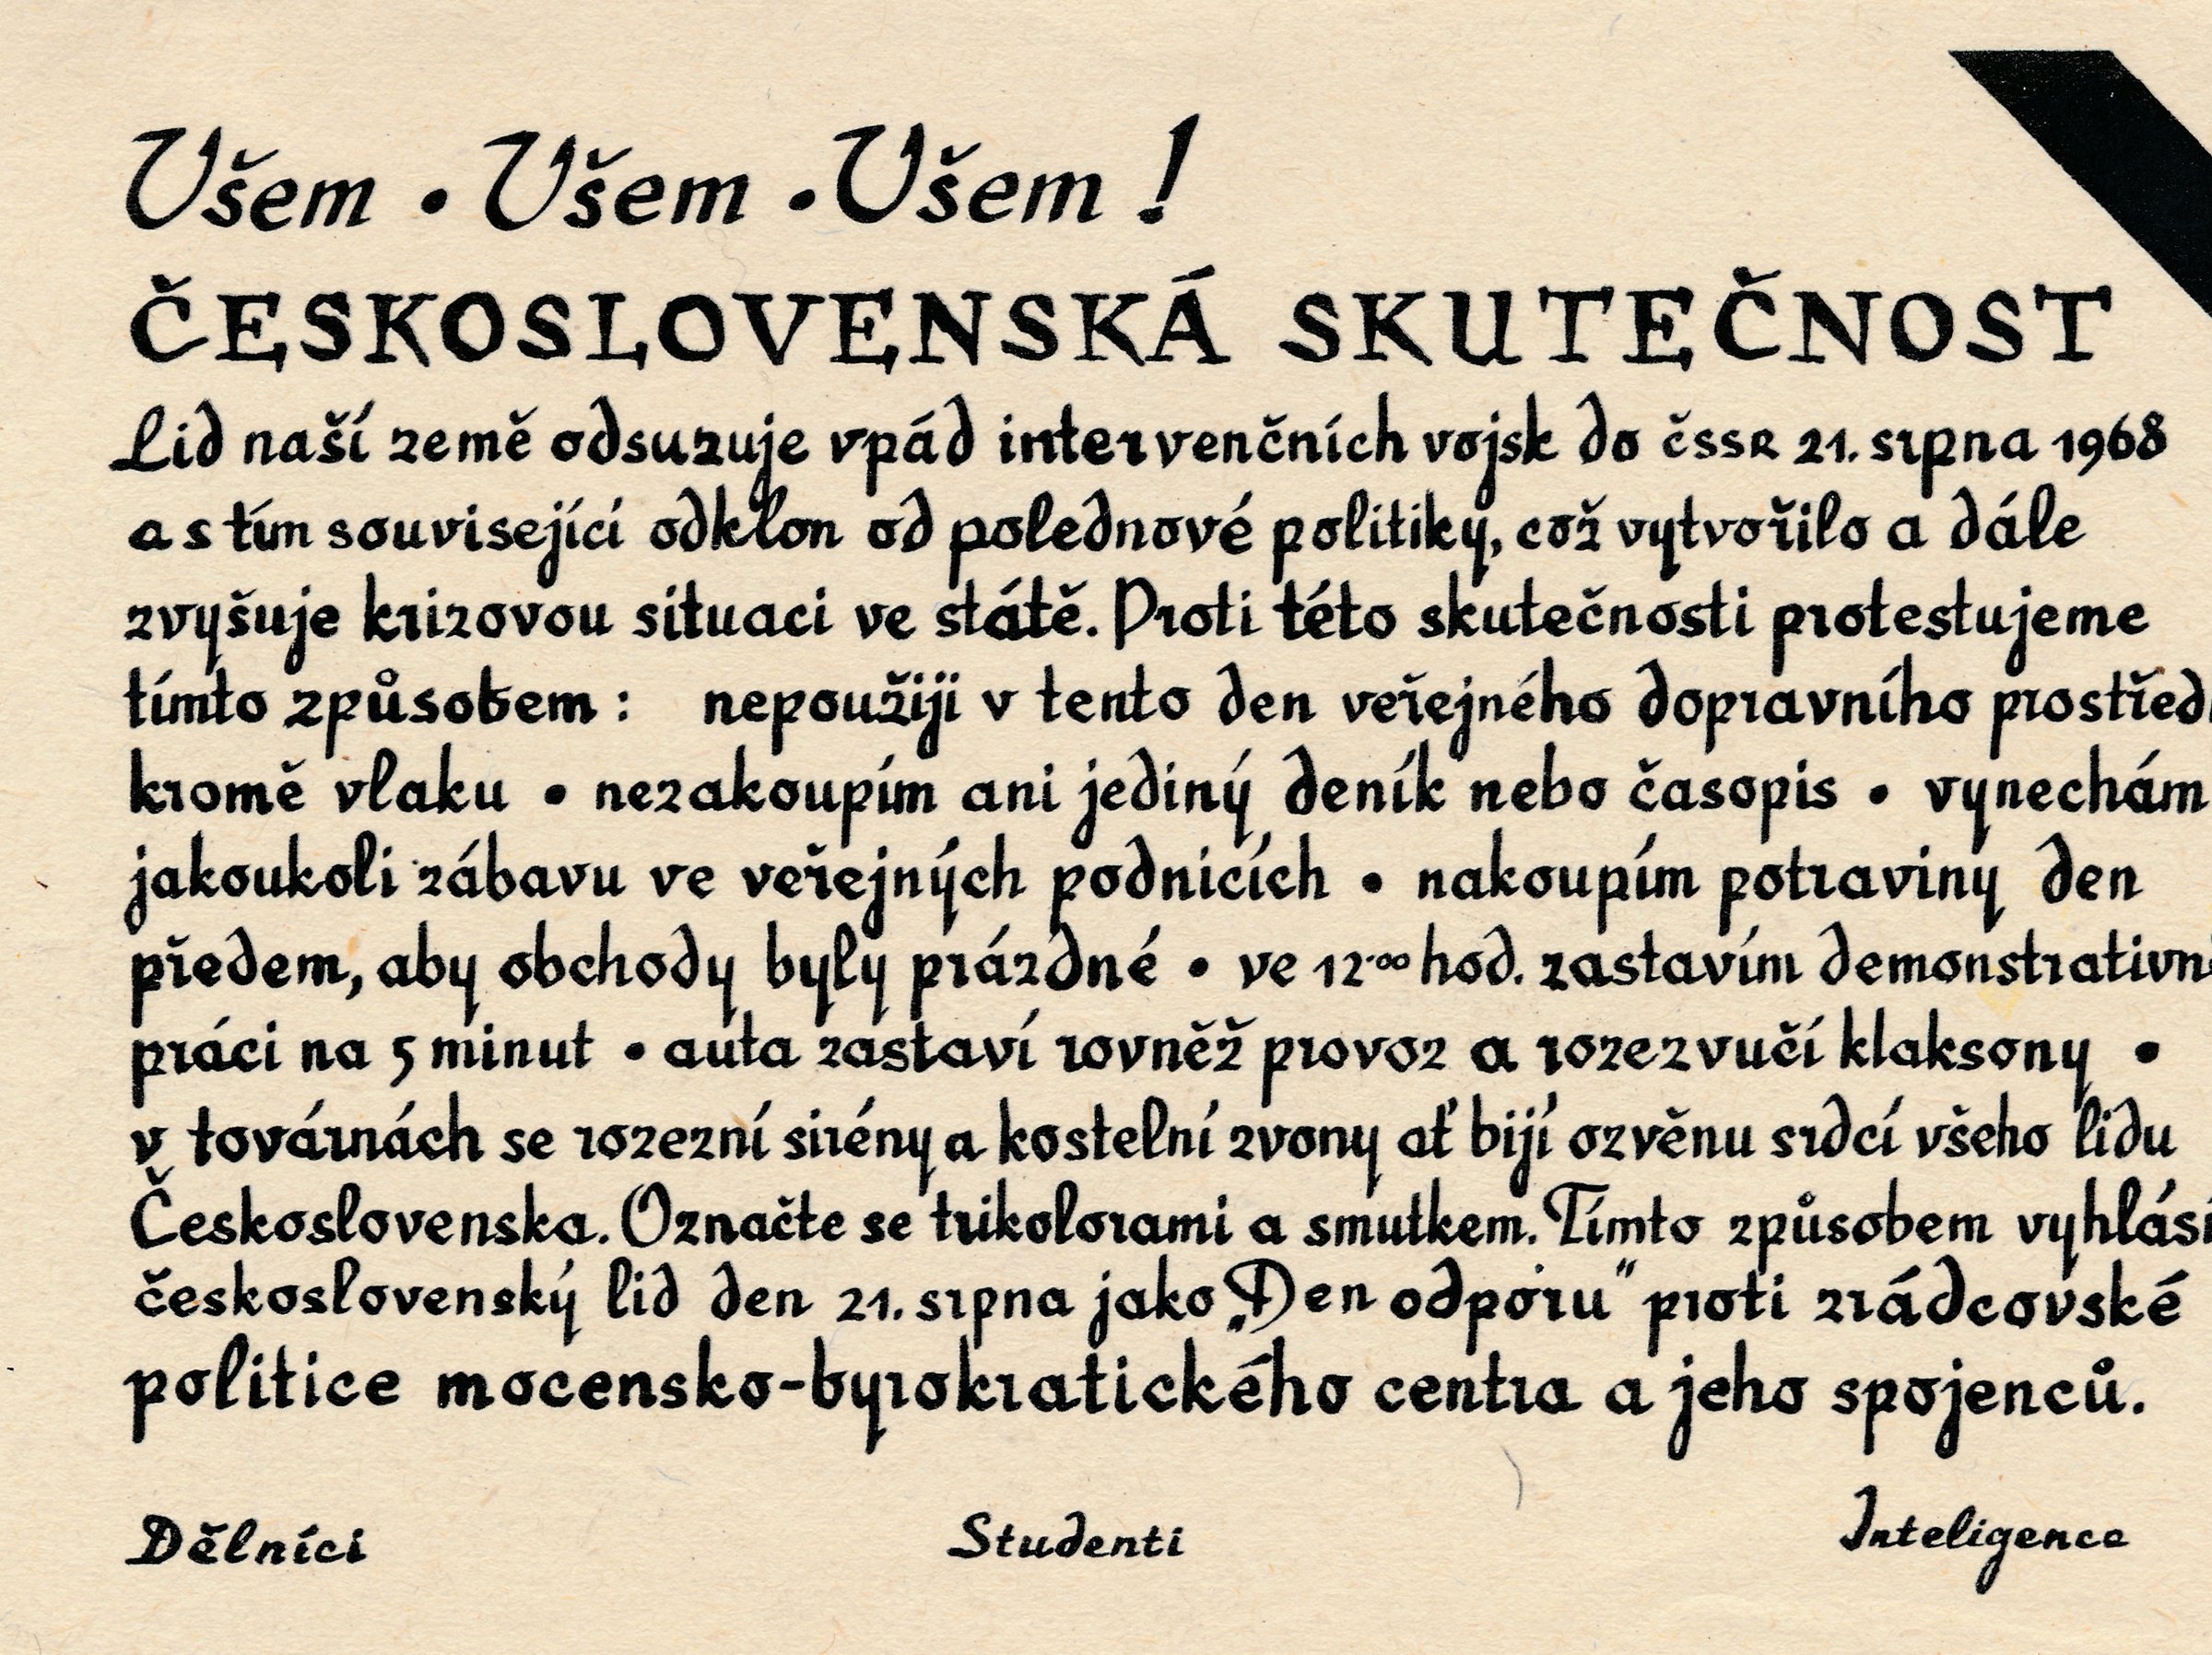 Všem • Všem • Všem !
ČESKOSLOVENSKÁ SKUTEČNOST
Lid naší země odsuzuje vpád intervenčních vojsk do ČSSR 21. srpna 1968
a s tím související odklon od polednové politiky, což vytvořilo a dále
zvyšuje krizovou situaci ve státě. Proti této skutečnosti protestujeme
tímto způsobem : nepoužiji v tento den veřejného dopravního prostřed
kromě vlaku • nezakoupím ani jediný deník nebo časopis • vynechám
jakoukoli zábavu ve veřejných podnicích • nakoupím potraviny den
předem, aby obchody byly prázdné • ve 12.00 hod. zastavím demonstrativn
práci na 5 minut • auta zastaví rovněž provoz a rozezvučí klaksony •
v továrnách se rozezní sirény a kostelní zvony ať bijí ozvěnu srdcí všeho lidu
Československa. Označte se trikolorami a smutkem. Tímto způsobem vyhlásí
československý lid den 21. srpna jako „Den odporu" proti zrádcovské
politice mocensko-byrokratického centra a jeho spojenců.
Dělníci Studenti Inteligence